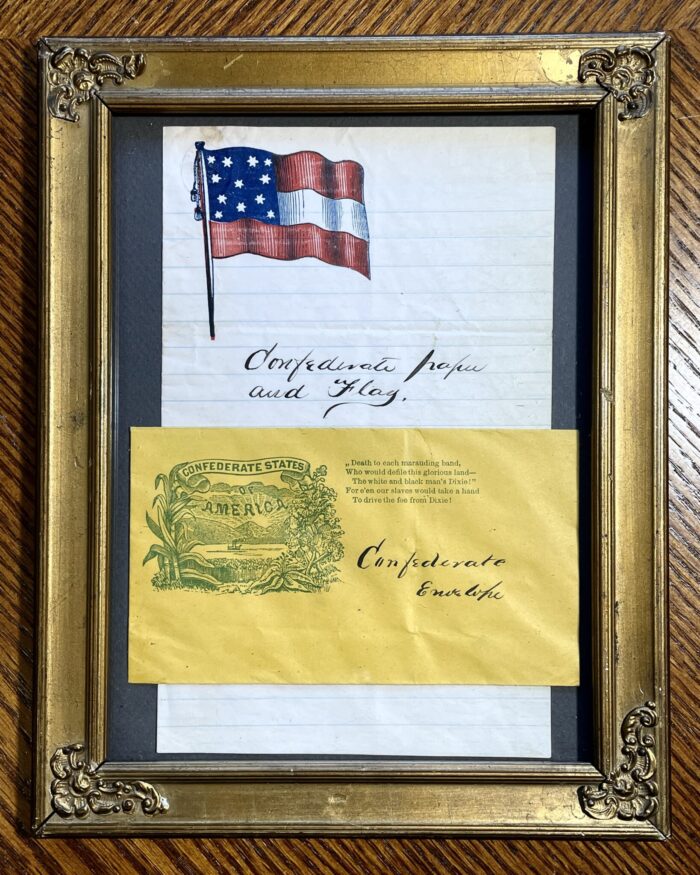 Confederate paper
and Flag.
CONFEDERATE STATES
OF
AMERICA
„Death to each marauding band,
Who would defile this glorious land—
The white and black man's Dixie!"
For e'en our slaves would take a hand
To drive the foe from Dixie!
Confederate
Envelope